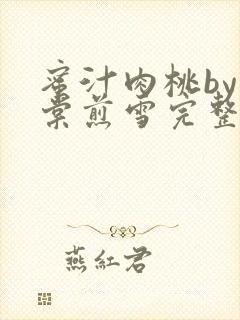 蜜汁肉桃by
棠煎雪完整
燕紅君